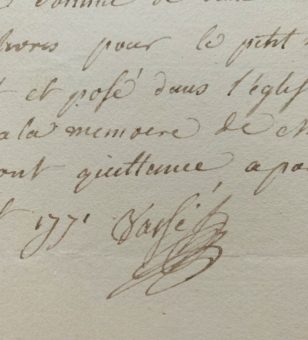 somme de
livres pour le petit
et posé dans l'églis
a la memoire de
ont quittance a
1771 Vassé